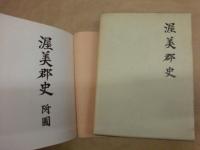 渥美郡史 附圖
渥美郡史